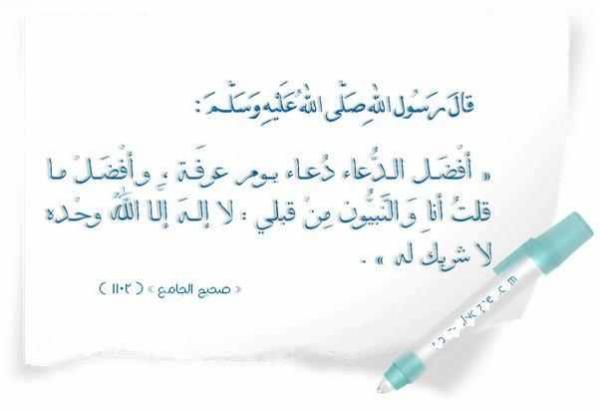 قَالَ رَسُول اللهِ صَلَّى اللهُ عَلَيْهِ وَسَلَّمَ :
« أفْضَل الدُّعاء دُعاء يوم عرفَة ، وأفْضَلْ ما
قلتُ أنا وَالنَبيُّون مِنْ قبلي : لا إلهَ إلَّا اللَّهُ وحْده
لا شريك له » .
« صحيح الجامع » ( ١١٠٢ )